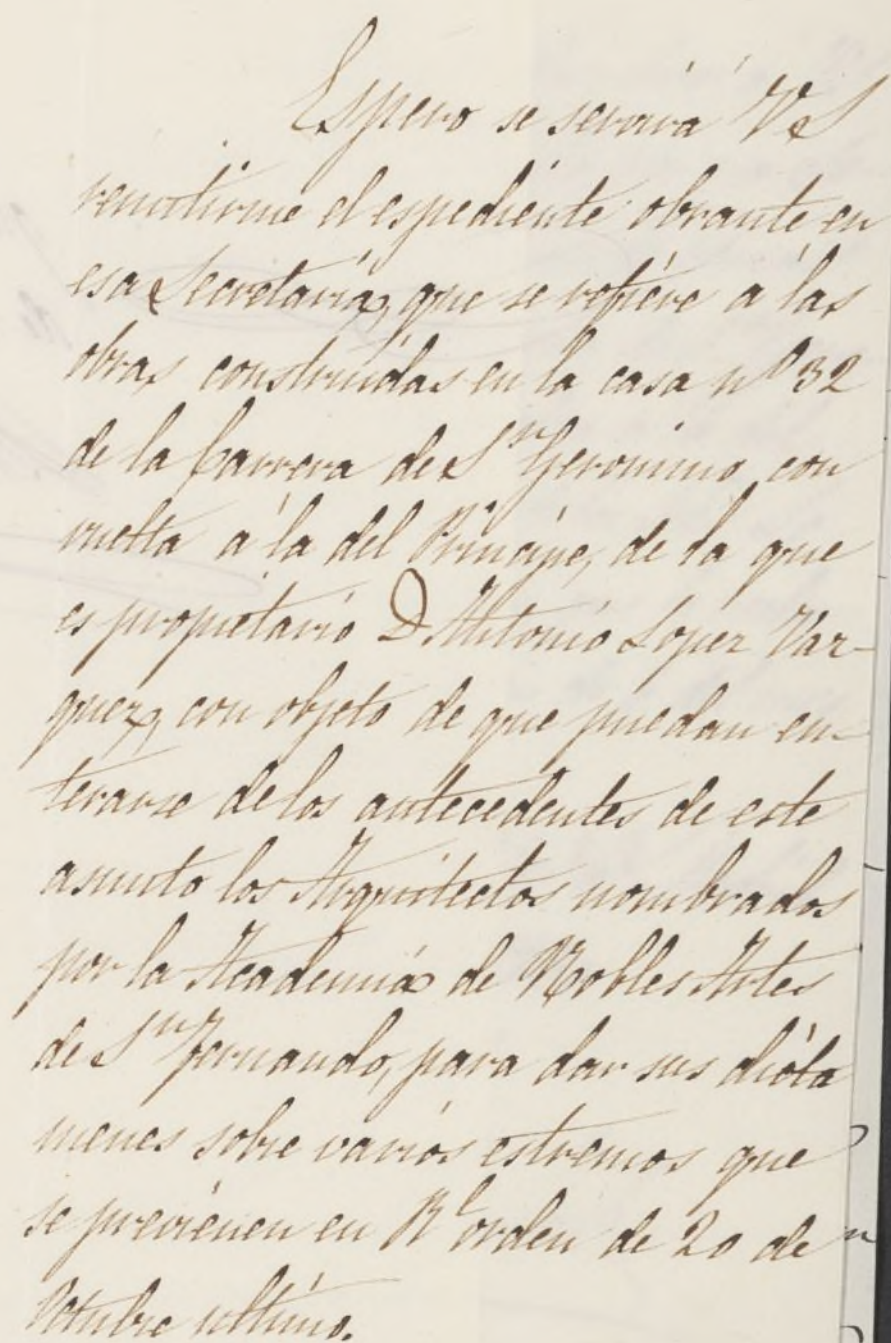 Espero se servirá V S
remitirme el espediente obrante en
esa Secretaría, que se refiere a las
obras construidas en la casa nº 32
de la Carrera de Sn Geronimo, con
vuelta a la del Principe, de la que
es propietario D Antonio Lopez Vaz-
quez, con objeto de que puedan en-
terarse de los antecedentes de este
asunto los Arquitectos nombrados
por la Academia de Nobles Artes
de Sn Fernando, para dar sus dicta
menes sobre varios estremos que
se previenen en Rl orden de 20 de
Octubre ultimo.